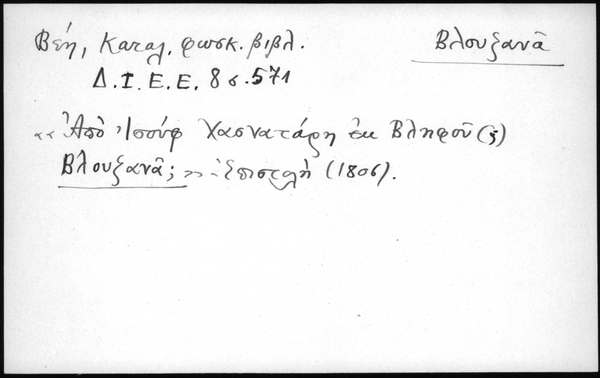 Βέη, Καταλ. φωσκ. βιβλ. Βλουξανᾶ
Δ.Ι.Ε.Ε. 8 σ. 571
«Ἀπὸ Ἰσούφ Χασνατάρη ἐκ Βληροῦ (;)
Βλουξανᾶ;» Ἐπιστολὴ (1806).